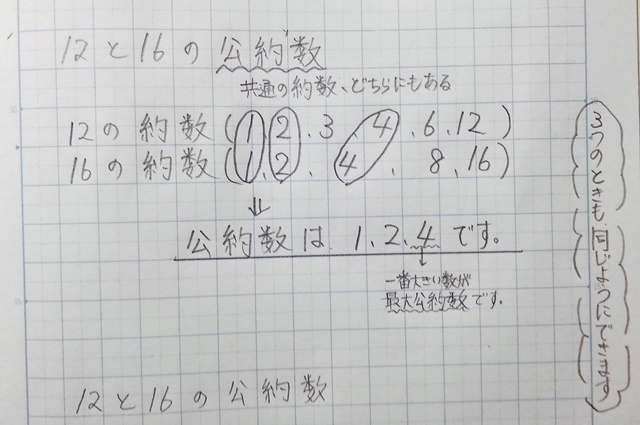 12と16の公約数
共通の約数、どちらにもある
12の約数(1,2,3,4,6,12)
16の約数(1,2,4,8,16)
⇓
公約数は1,2,4です。
↓
一番大きい数が
最大公約数です。
3つのときも同じようにできます
12と16の公約数